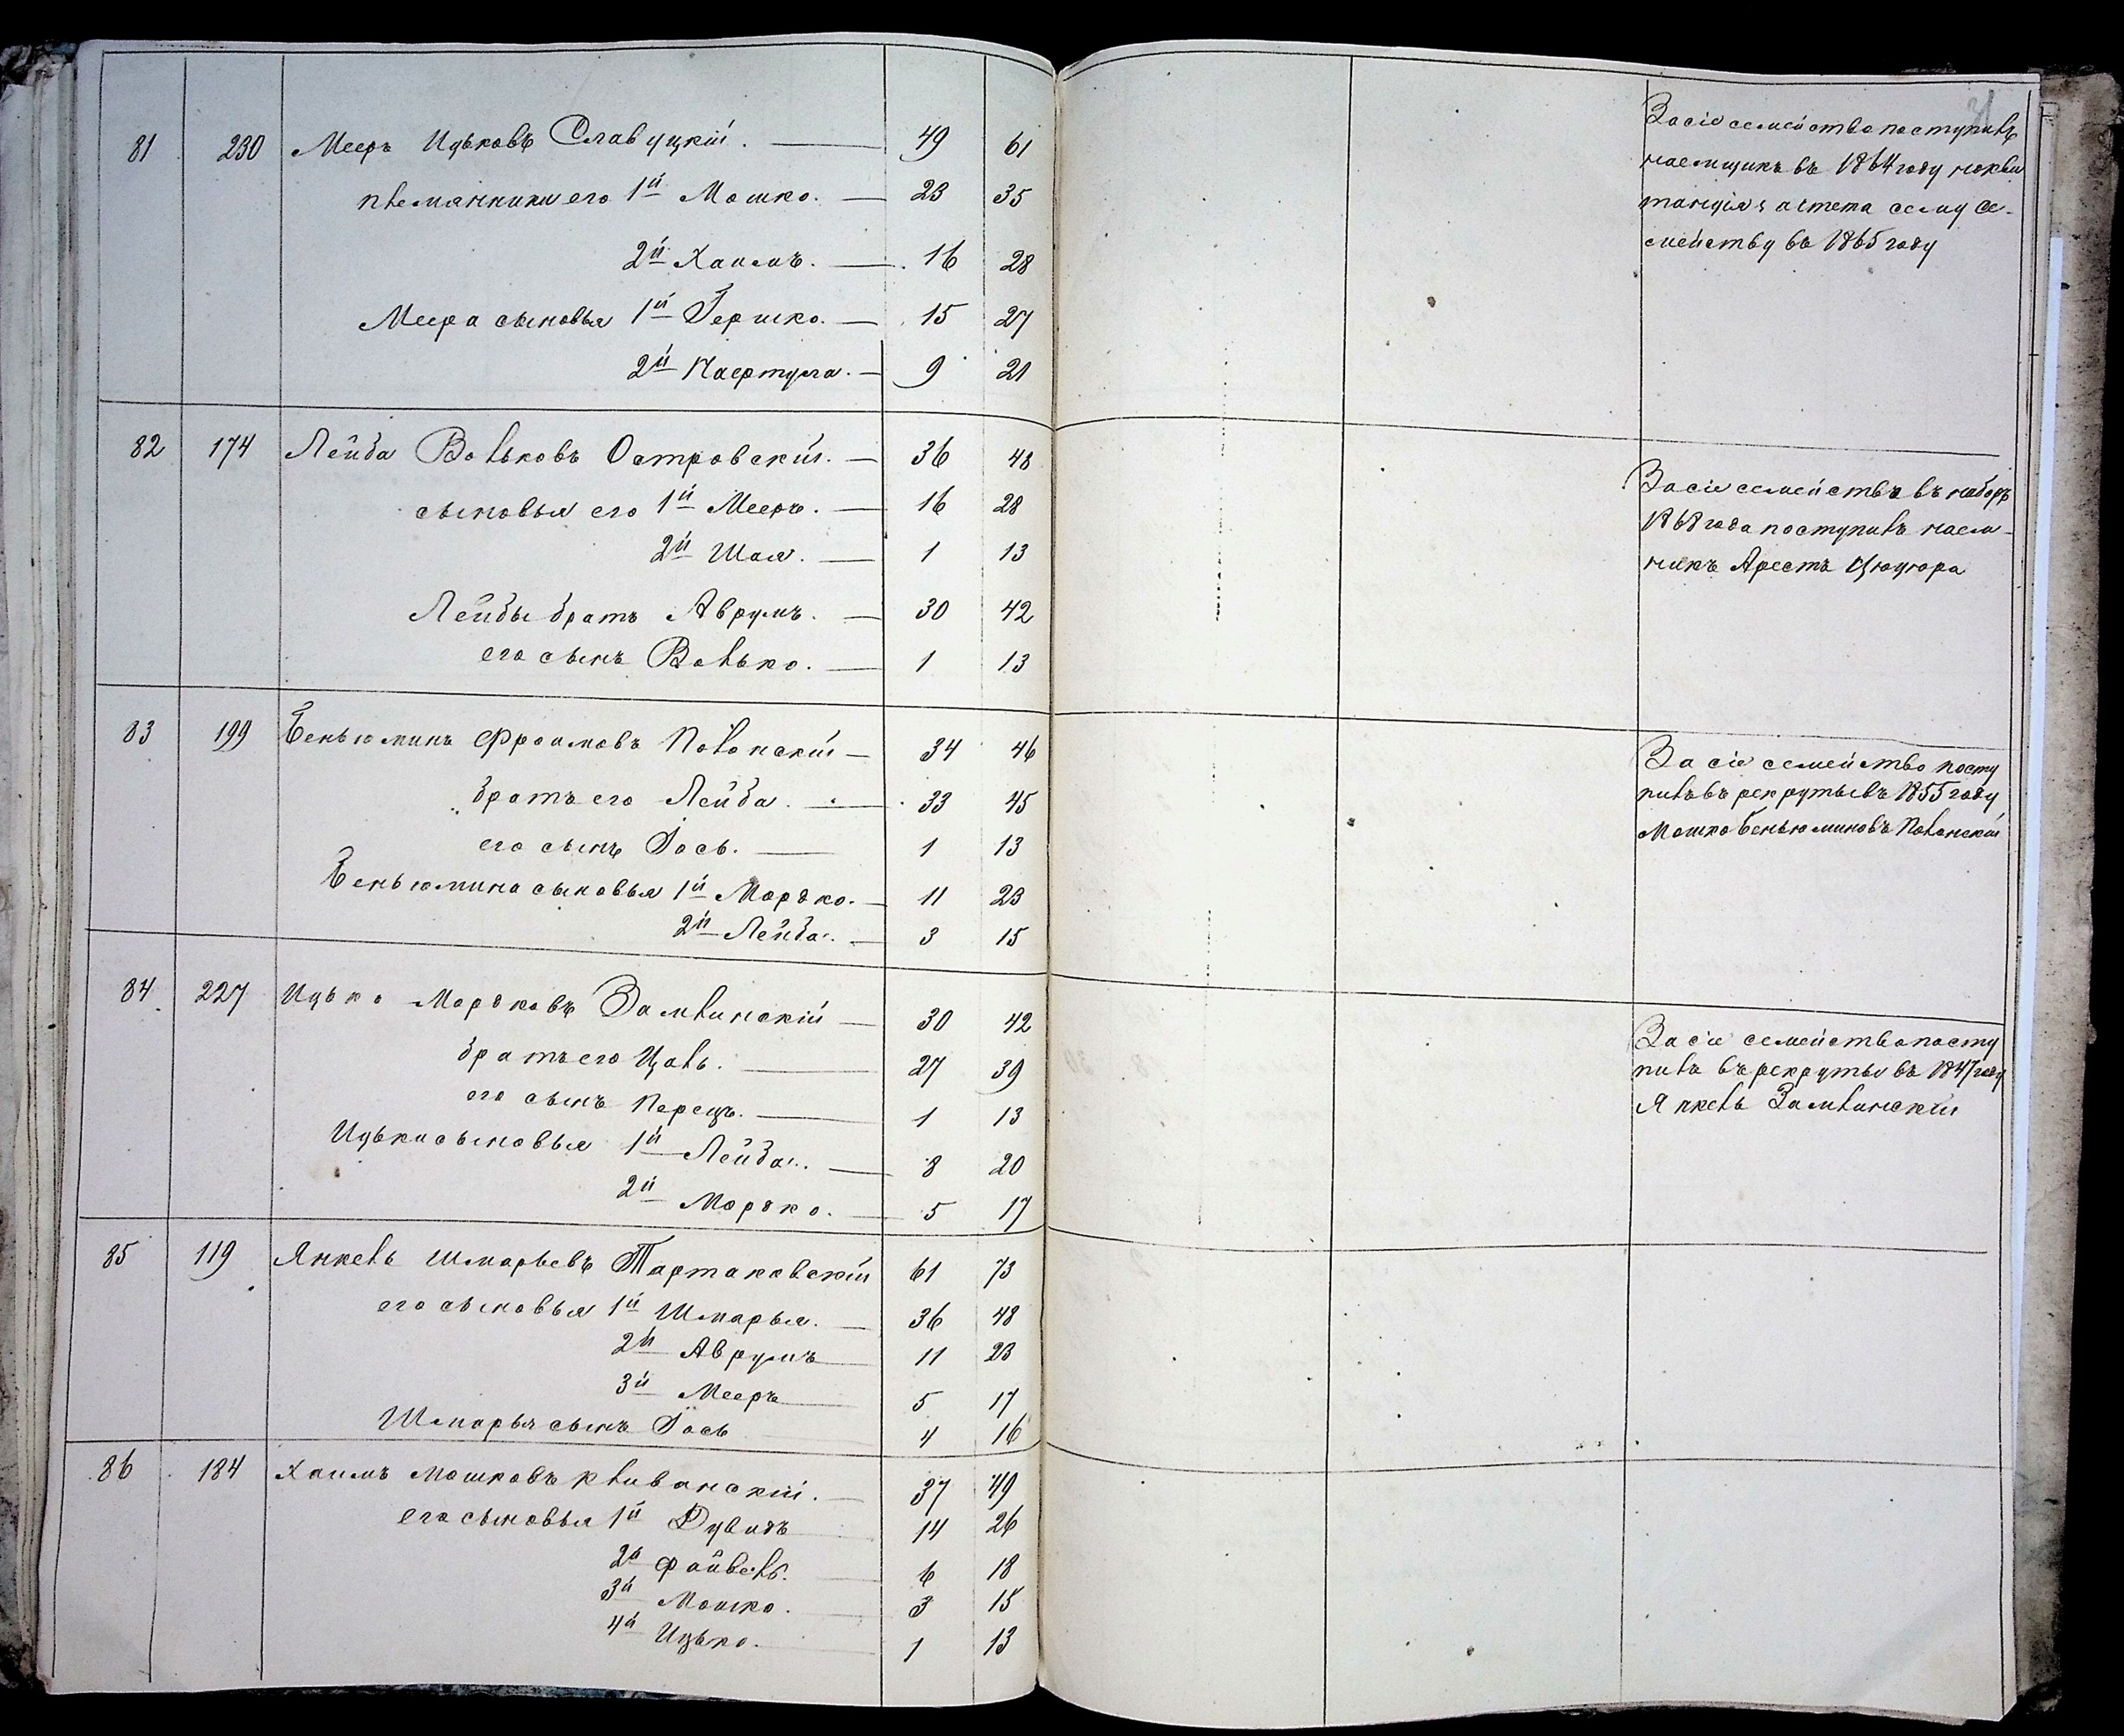 81 230 Мееръ Ицьковъ Славуцкій. 49 61
племянники его 1й Мошко. 23 35
2й Хаимъ. 16 28
Меера сыновья 1й Гершко. 15 27
2й 9 21
82 174 Лейба Вольковъ Островскій. 36 48
сыновья его 1й Мееръ. 16 28
2й Шая. 1 13
Лейбы братъ Аврумъ. 30 42
его сынъ Волько. 1 13
83 199 Беньюминъ Фроимовъ Полонскій 34 46
братъ его Лейба. 33 45
его сынъ Іось. 1 13
Беньюмина сыновья 1й Мордко. 11 23
2й Лейба. 3 15
84 227 Ицько Мордковъ Замлинскій 30 42
братъ его Цаль. 27 39
его сынъ Перецъ. 1 13
Ицьки сыновья 1й Лейба. 8 20
2й Мордко. 5 17
85 119 Янкель Шмарьевъ Тартаковскій 61 73
его сыновья 1й Шмарья. 36 48
2й Аврумъ 11 23
3й Мееръ 5 17
Шмарья сынъ Іось 4 16
86 184 Хаимъ Мошковъ Кливанскій. 37 49
его сыновья 1й Дувидъ 14 26
2й Файвель. 6 18
3й Мошко. 3 15
4й Ицько. 1 13
За сіе семейство поступилъ
наемщикъ въ 1864 году но кви
танція зачтена сему се-
мейству въ 1865 году
За сіе семейство въ наборъ
1868 года поступилъ наем-
никъ Арестъ
За сіе семейство посту
пилъ въ рекруты въ 1855 году
Мошко Беньюминовъ Полонскій
За сіе семейство посту
пилъ въ рекруты въ 1847 году
Янкель Замлинскій